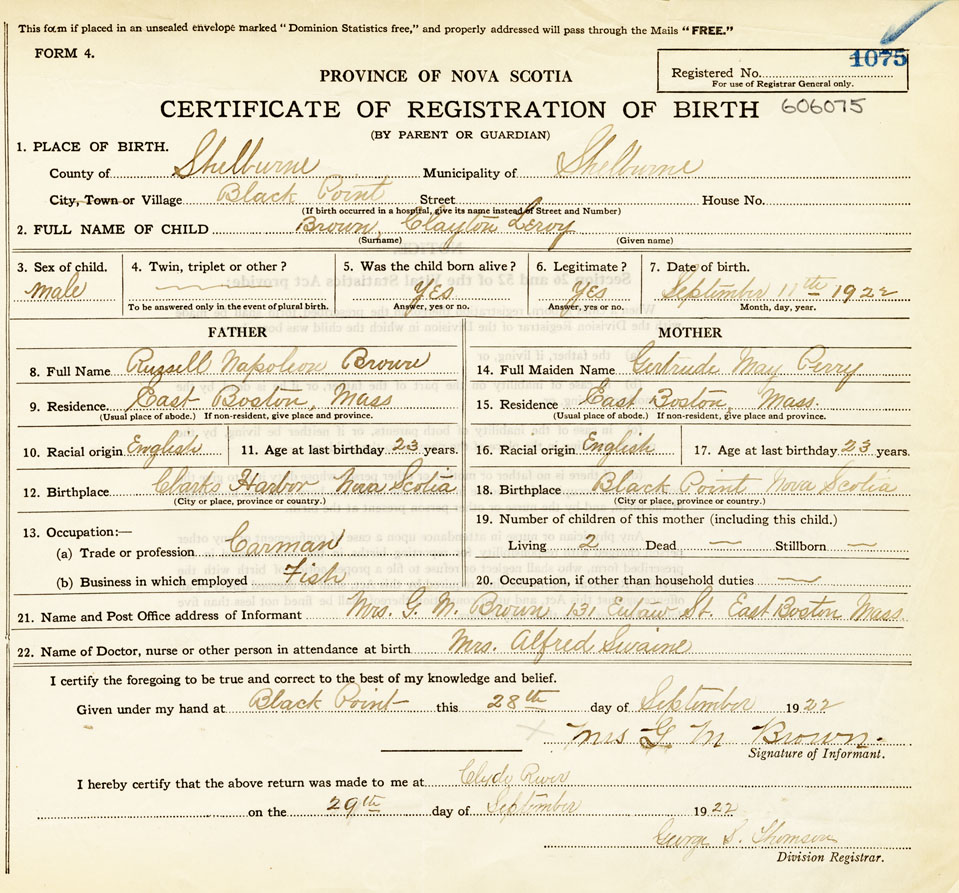 This form if placed in an unsealed envelope marked "Dominion Statistics free," and properly addressed will pass through the Mails "FREE."
FORM 4.
1075
Registered No.
For use of Registrar General only.
PROVINCE OF NOVA SCOTIA
CERTIFICATE OF REGISTRATION OF BIRTH 606075
(BY PARENT OR GUARDIAN)
1. PLACE OF BIRTH.
County of Shelburne Municipality of Shelburne
City, Town or Village Black Point Street House No.
(If birth occurred in a hospital, give its name instead of Street and Number)
2. FULL NAME OF CHILD Brown, Clayton Leroy
(Surname) (Given name)
3. Sex of child. 4. Twin, triplet or other? 5. Was the child born alive? 6. Legitimate? 7. Date of birth.
Male Yes Yes September 11th 1922
To be answered only in the event of plural birth. Answer, yes or no. Answer, yes or no. Month, day, year.
FATHER
8. Full Name Russell Napoleon Brown
9. Residence East Boston, Mass
(Usual place of abode.) If non-resident, give place and province.
10. Racial origin English 11. Age at last birthday 23 years.
12. Birthplace Clarks Harbor Nova Scotia
(City or place, province or country.)
13. Occupation:—
(a) Trade or profession Carman
(b) Business in which employed Fish
MOTHER
14. Full Maiden Name Gertrude May Perry
15. Residence East Boston, Mass.
(Usual place of abode.) If non-resident, give place and province.
16. Racial origin English 17. Age at last birthday 23 years.
18. Birthplace Black Point Nova Scotia
(City or place, province or country.)
19. Number of children of this mother (including this child.)
Living 2 Dead — Stillborn —
20. Occupation, if other than household duties —
21. Name and Post Office address of Informant Mrs. G. M. Brown 131 Eutaw St. East Boston Mass.
22. Name of Doctor, nurse or other person in attendance at birth Mrs. Alfred Swaine
I certify the foregoing to be true and correct to the best of my knowledge and belief.
Given under my hand at Black Point this 28th day of September 1922
Mrs G M Brown.
Signature of Informant.
I hereby certify that the above return was made to me at Clyde River
on the 29th day of September 1922
George S. Thomson
Division Registrar.